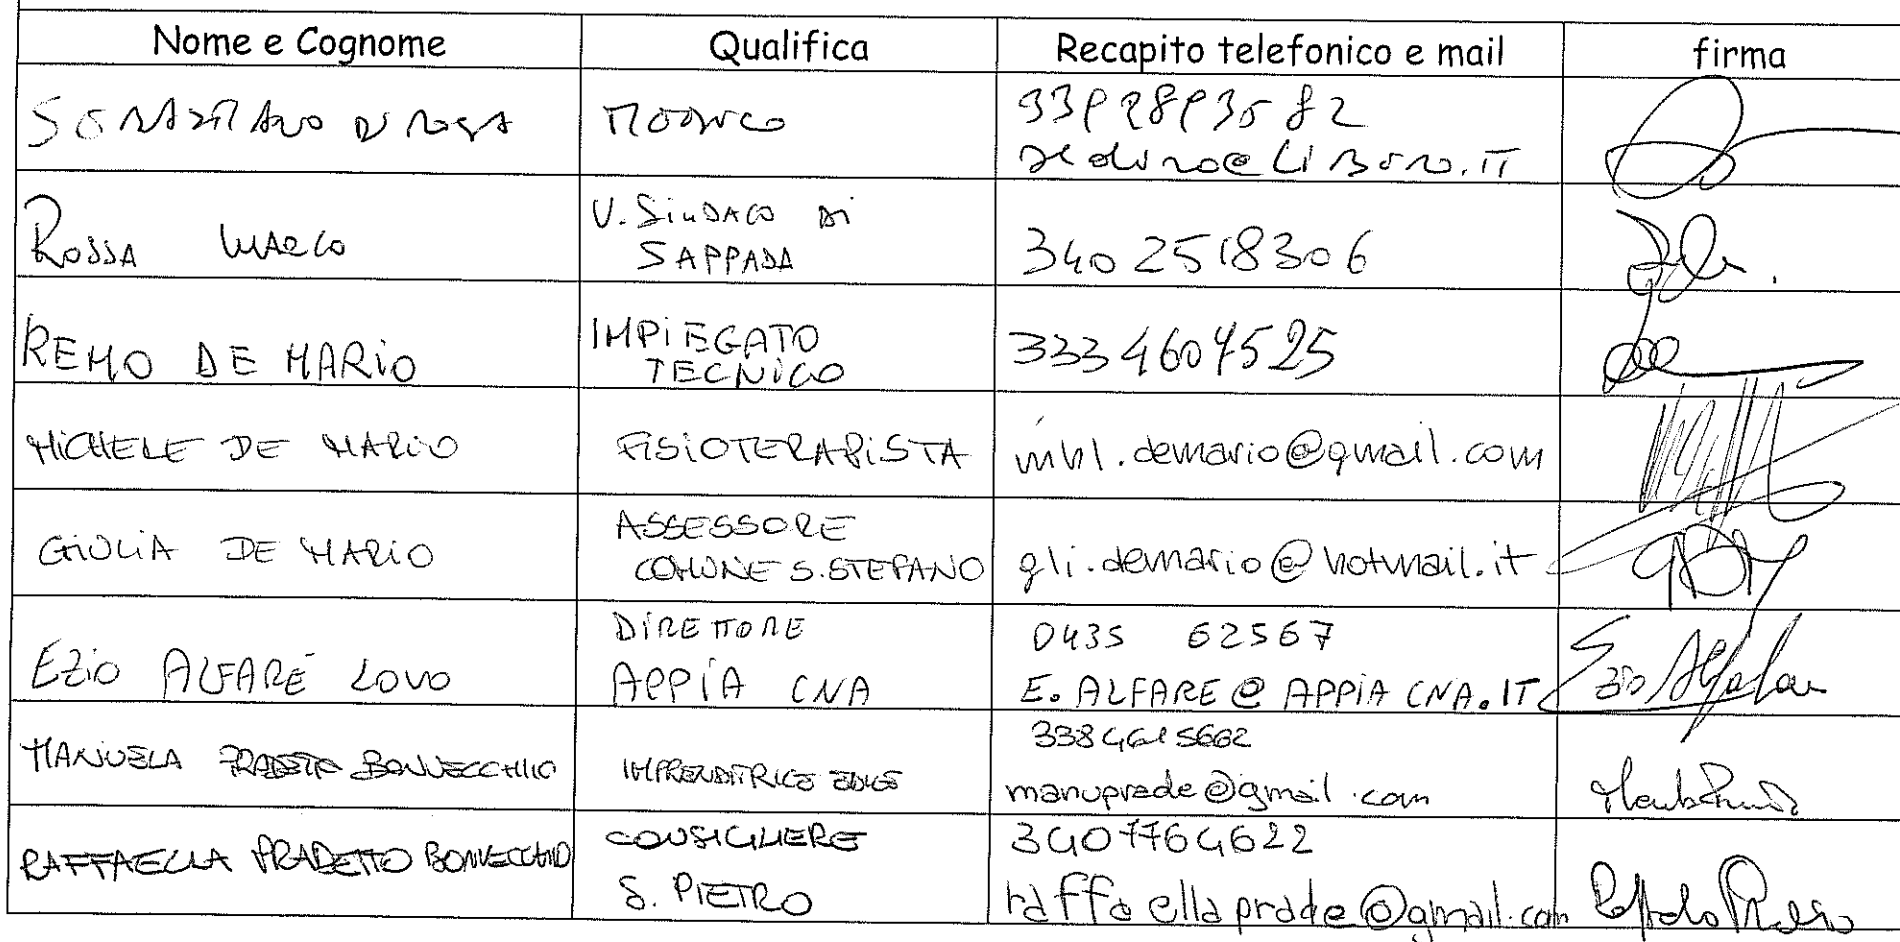 Nome e Cognome Qualifica Recapito telefonico e mail firma
MEDICO
ROSSA MARCO V. SINDACO DI
SAPPADA 340 2518306
REMO DE MARIO IMPIEGATO
TECNICO 333 4604525
MICHELE DE MARIO FISIOTERAPISTA mhl.demario@gmail.com
GIULIA DE MARIO ASSESSORE
COMUNE S. STEFANO gli.demario@hotmail.it
EZIO ALFARÈ LOVO DIRETTORE
APPIA CNA 0435 62567
E.ALFARE@APPIACNA.IT Ezio Alfare
MANUELA PRADETTO BONVECCHIO IMPRENDITRICE EDILE
manuprade@gmail.com
RAFFAELLA PRADETTO BONVECCHIO CONSIGLIERE
S. PIETRO 3407764622
raffaellaprade@gmail.com